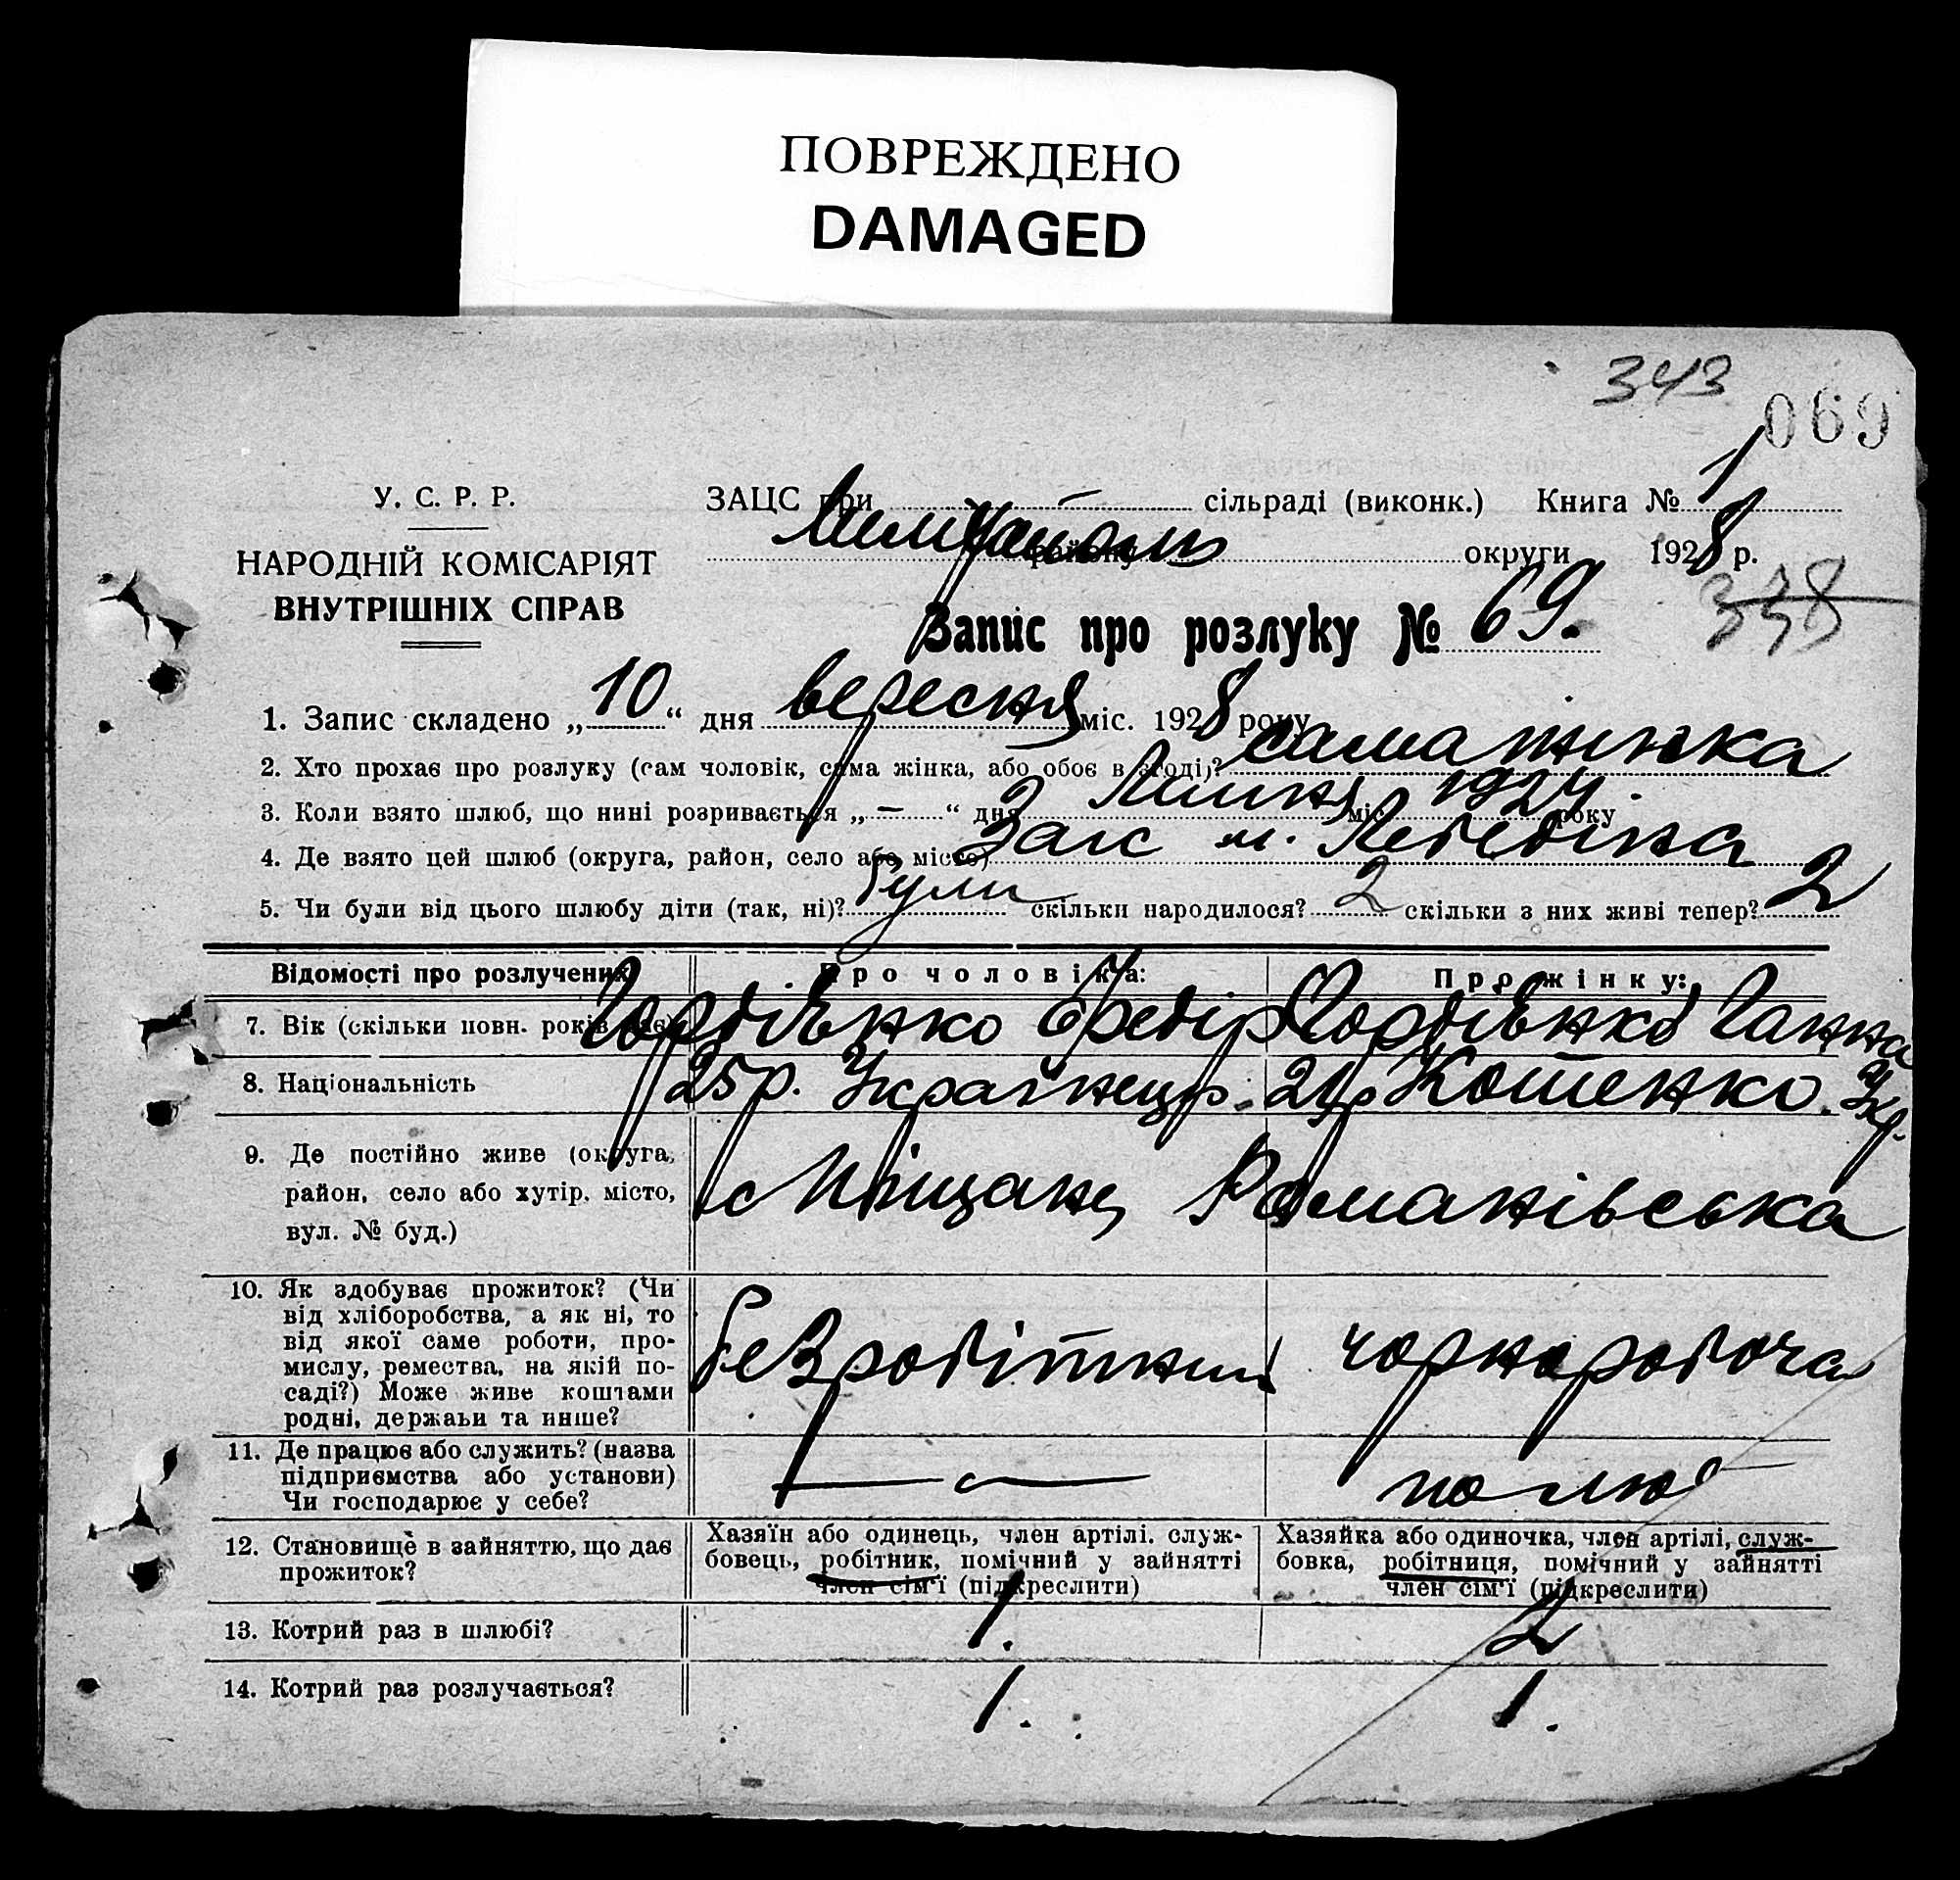 ПОВРЕЖДЕНО
DAMAGED
343
069
У. С. Р. Р.
НАРОДНІЙ КОМІСАРІЯТ
ВНУТРІШНІХ СПРАВ
ЗАЦС при — сільраді (виконк.) Книга № 1
району округи 1928 р.
338
Запис про розлуку № 69.
1. Запис складено „10“ дня вересня міс. 1928 року
2. Хто прохає про розлуку (сам чоловік, сама жінка, або обоє в згоді)? сама жінка
3. Коли взято шлюб, що нині розривається „—“ дня Липня міс. 1924 року
4. Де взято цей шлюб (округа, район, село або місто) Загс м. Лебедіна
5. Чи були від цього шлюбу діти (так, ні)? були скільки народилося? 2 скільки з них живі тепер? 2
Відомості про розлучених Про чоловіка: Про жінку:
7. Вік (скільки повн. років має) Гордієнко Федір Гордієнко Ганна
8. Національність 25р. Українець. Кошенко. Укр.
9. Де постійно живе (округа, район, село або хутір, місто, вул. № буд.) с Міщани, Романівська
10. Як здобуває прожиток? (Чи від хліборобства, а як ні, то від якої саме роботи, промислу, ремества, на якій посаді?) Може живе коштами родні, держави та инше?
безробітний чорноробоча
11. Де працює або служить? (назва підприємства або установи) Чи господарює у себе?
— —
12. Становище в зайняттю, що дає прожиток?
Хазяїн або одинець, член артілі. службовець, робітник, помічний у зайнятті член сім'ї (підкреслити)
Хазяйка або одиночка, член артілі, службовка, робітниця, помічний у зайнятті член сім'ї (підкреслити)
13. Котрий раз в шлюбі? 1. 2
14. Котрий раз розлучається? 1. 1.